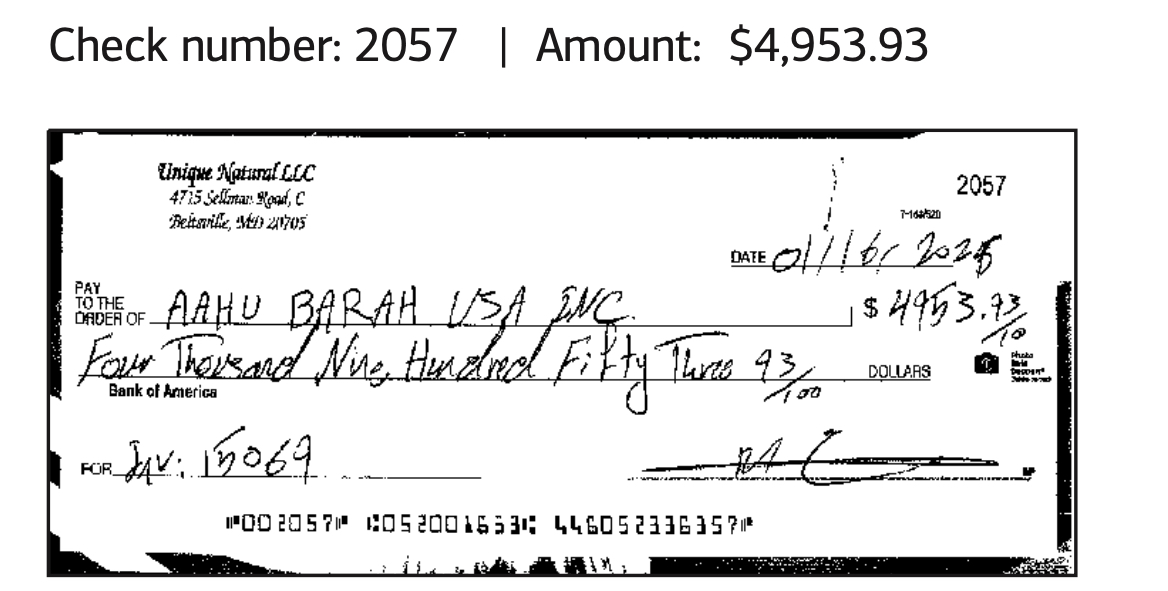 Check number: 2057 | Amount: $4,953.93
Unique Natural LLC
4715 Sellman Road, C
Beltsville, MD 20705
2057
7-164/520
DATE 01/16/2025
PAY TO THE ORDER OF AAHU BARAH USA INC. $ 4953.93/10
Four Thousand Nine Hundred Fifty Three 93/100 DOLLARS
Bank of America
FOR Inv: 15069
⑈002057⑈ ⑆052001633⑆ 446052336357⑈